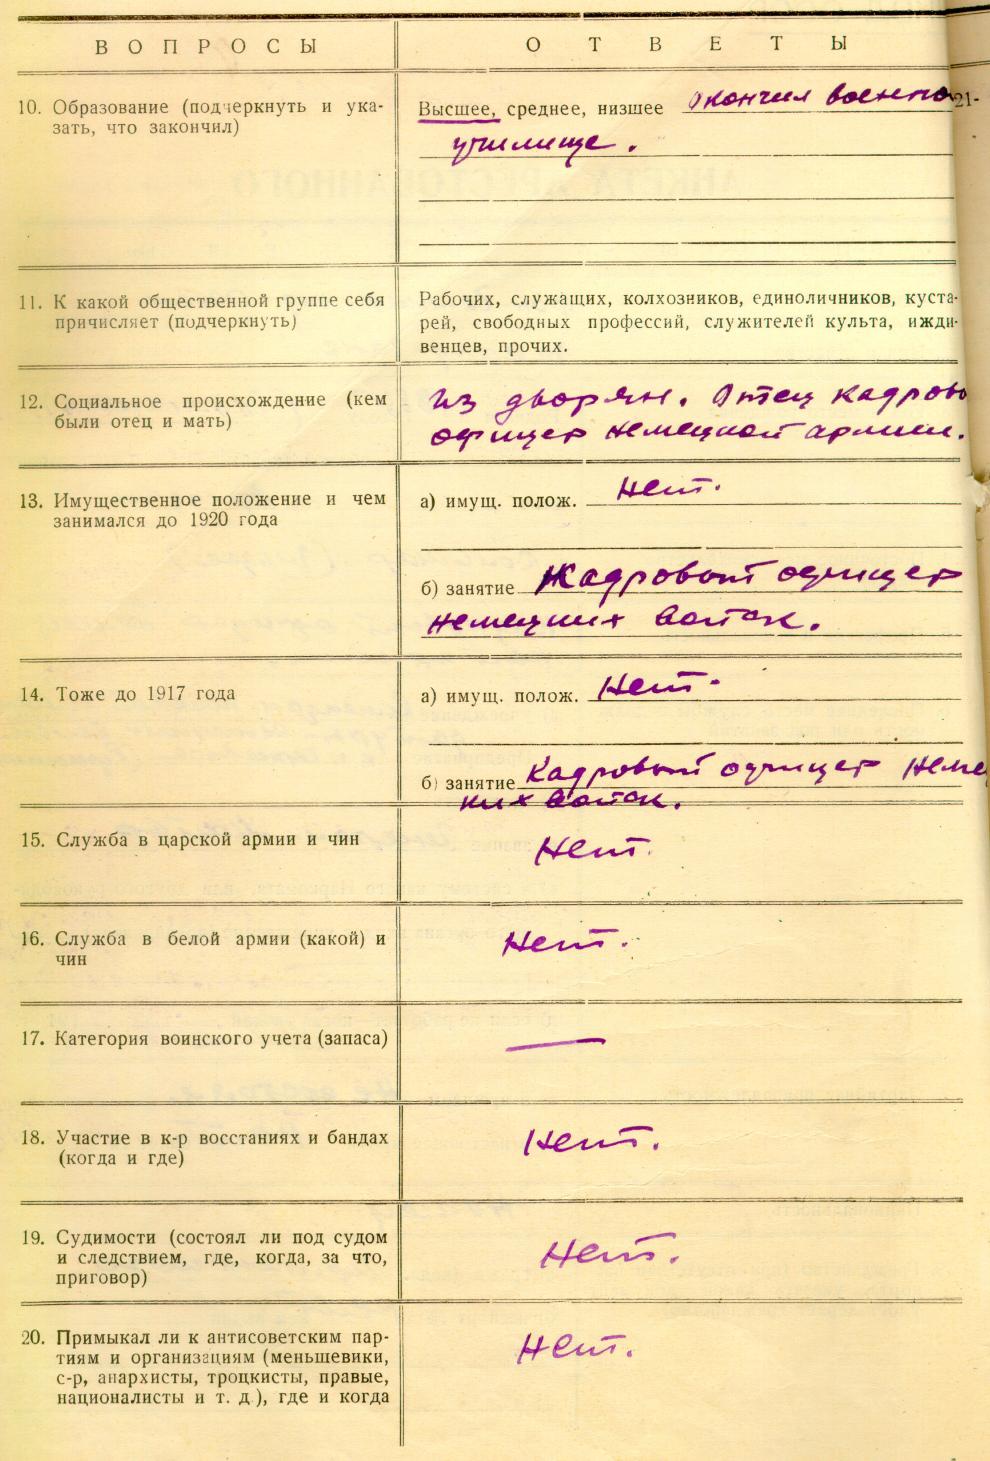 ВОПРОСЫ
ОТВЕТЫ
10. Образование (подчеркнуть и ука-
зать, что закончил)
Высшее, среднее, низшее окончил военно
21-
училище.
11. К какой общественной группе себя
причисляет (подчеркнуть)
Рабочих, служащих, колхозников, единоличников, куста-
рей, свободных профессий, служителей культа, ижди-
венцев, прочих.
12. Социальное происхождение (кем
были отец и мать)
Из дворян. Отец кадровы
офицер немецкой армии.
13. Имущественное положение и чем
занимался до 1920 года
а) имущ. полож. Нет.
б) занятие Кадровый офицер
немецких войск.
14. Тоже до 1917 года
а) имущ. полож. Нет.
б) занятие Кадровый офицер немец
ких войск.
15. Служба в царской армии и чин
Нет.
16. Служба в белой армии (какой) и
чин
Нет.
17. Категория воинского учета (запаса)
—
18. Участие в к-р восстаниях и бандах
(когда и где)
Нет.
19. Судимости (состоял ли под судом
и следствием, где, когда, за что,
приговор)
Нет.
20. Примыкал ли к антисоветским пар-
тиям и организациям (меньшевики,
с-р, анархисты, троцкисты, правые,
националисты и т. д.), где и когда
Нет.